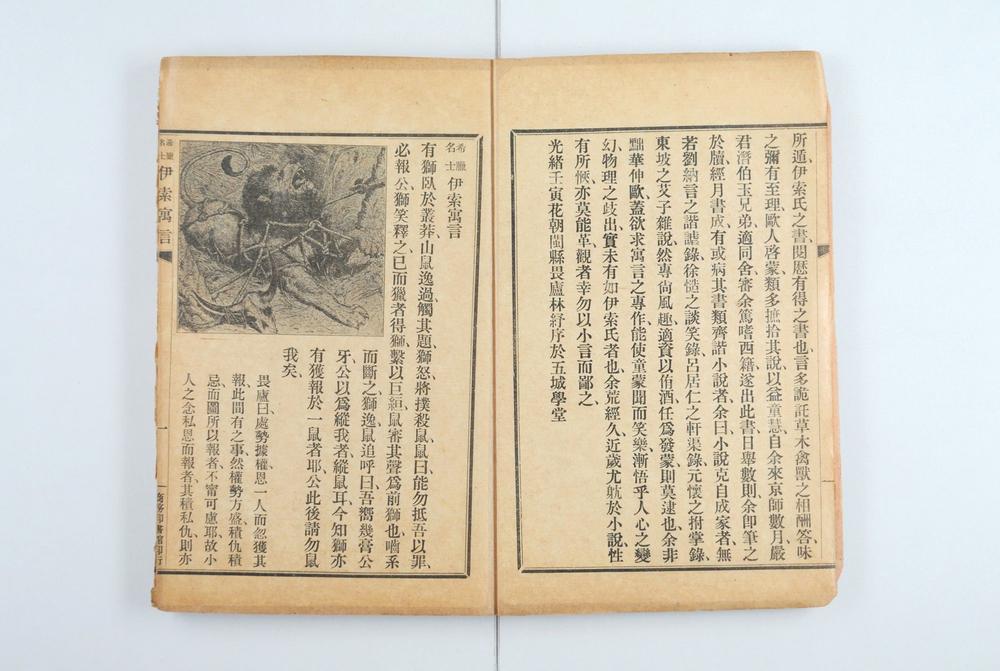 所遁、伊索氏之書、閱歷有得之書也、言多詭託草木禽獸之相酬答、味
之彌有至理、歐人啓蒙、類多摭拾其說、以益童慧、自余來京師數月、嚴
君潛伯玉兄弟適同舍、審余篤嗜西籍、遂出此書、日舉數則、余卽筆之
於牘、經月書成、有或病其書類齊諧小說者、余曰、小說克自成家者、無
若劉納言之諧謔錄、徐慥之談笑錄、呂居仁之軒渠錄、元懷之拊掌錄、
東坡之艾子雜說、然專尙風趣、適資以侑酒、任爲發蒙、則莫逮也、余非
黜華伸歐、蓋欲求寓言之專作、能使童蒙聞而笑樂、漸悟乎人心之變
幻、物理之歧出、實未有如伊索氏者也、余荒經久、近歲尤躭於小說、性
有所慨、亦莫能革、觀者幸勿以小言而鄙之、
光緒壬寅花朝閩縣畏廬林紓序於五城學堂
希臘名士 伊索寓言
有獅臥於叢莽、山鼠逸過、觸其題、獅怒、將撲殺鼠、鼠曰、能勿抵吾以罪、
必報公、獅笑釋之、已而獵者得獅、繫以巨絙、鼠審其聲爲前獅也、嚙系
而斷之、獅逸、鼠追呼曰、吾嚮幾膏公
牙、公以爲縱我者縱鼠耳、今知獅亦
有獲報於一鼠者耶、公此後請勿鼠
我矣、
畏廬曰、處勢據權、恩一人而忽獲其
報、此間有之事、然權勢方盛、積仇積
忌而圖所以報者、不甯可慮耶、故小
人之念私恩而報者、其積私仇則亦
希臘名士 伊索寓言
一
商務印書館印行